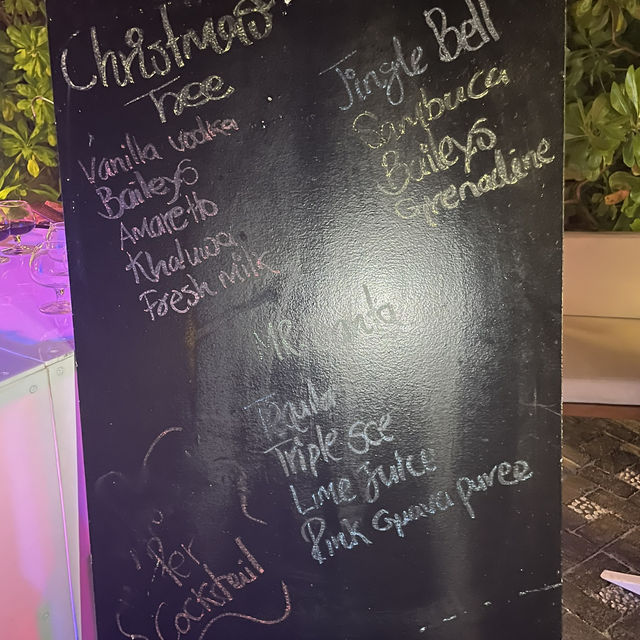 Christmas
Tree
Vanilla vodka
Baileys
Amaretto
Khaluwa
Fresh milk
Jingle Bell
Sambuca
Baileys
Grenadine
Tequila
Triple Sec
Lime juice
Pink Guava puree
Per
Cocktail